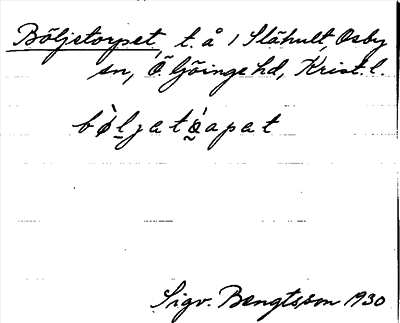 Böljetorpet, t. å 1 Slähult, Osby
sn, Ö. Göinge hd, Krist. l.
bòljatóapat
Sigv. Bengtsson 1930